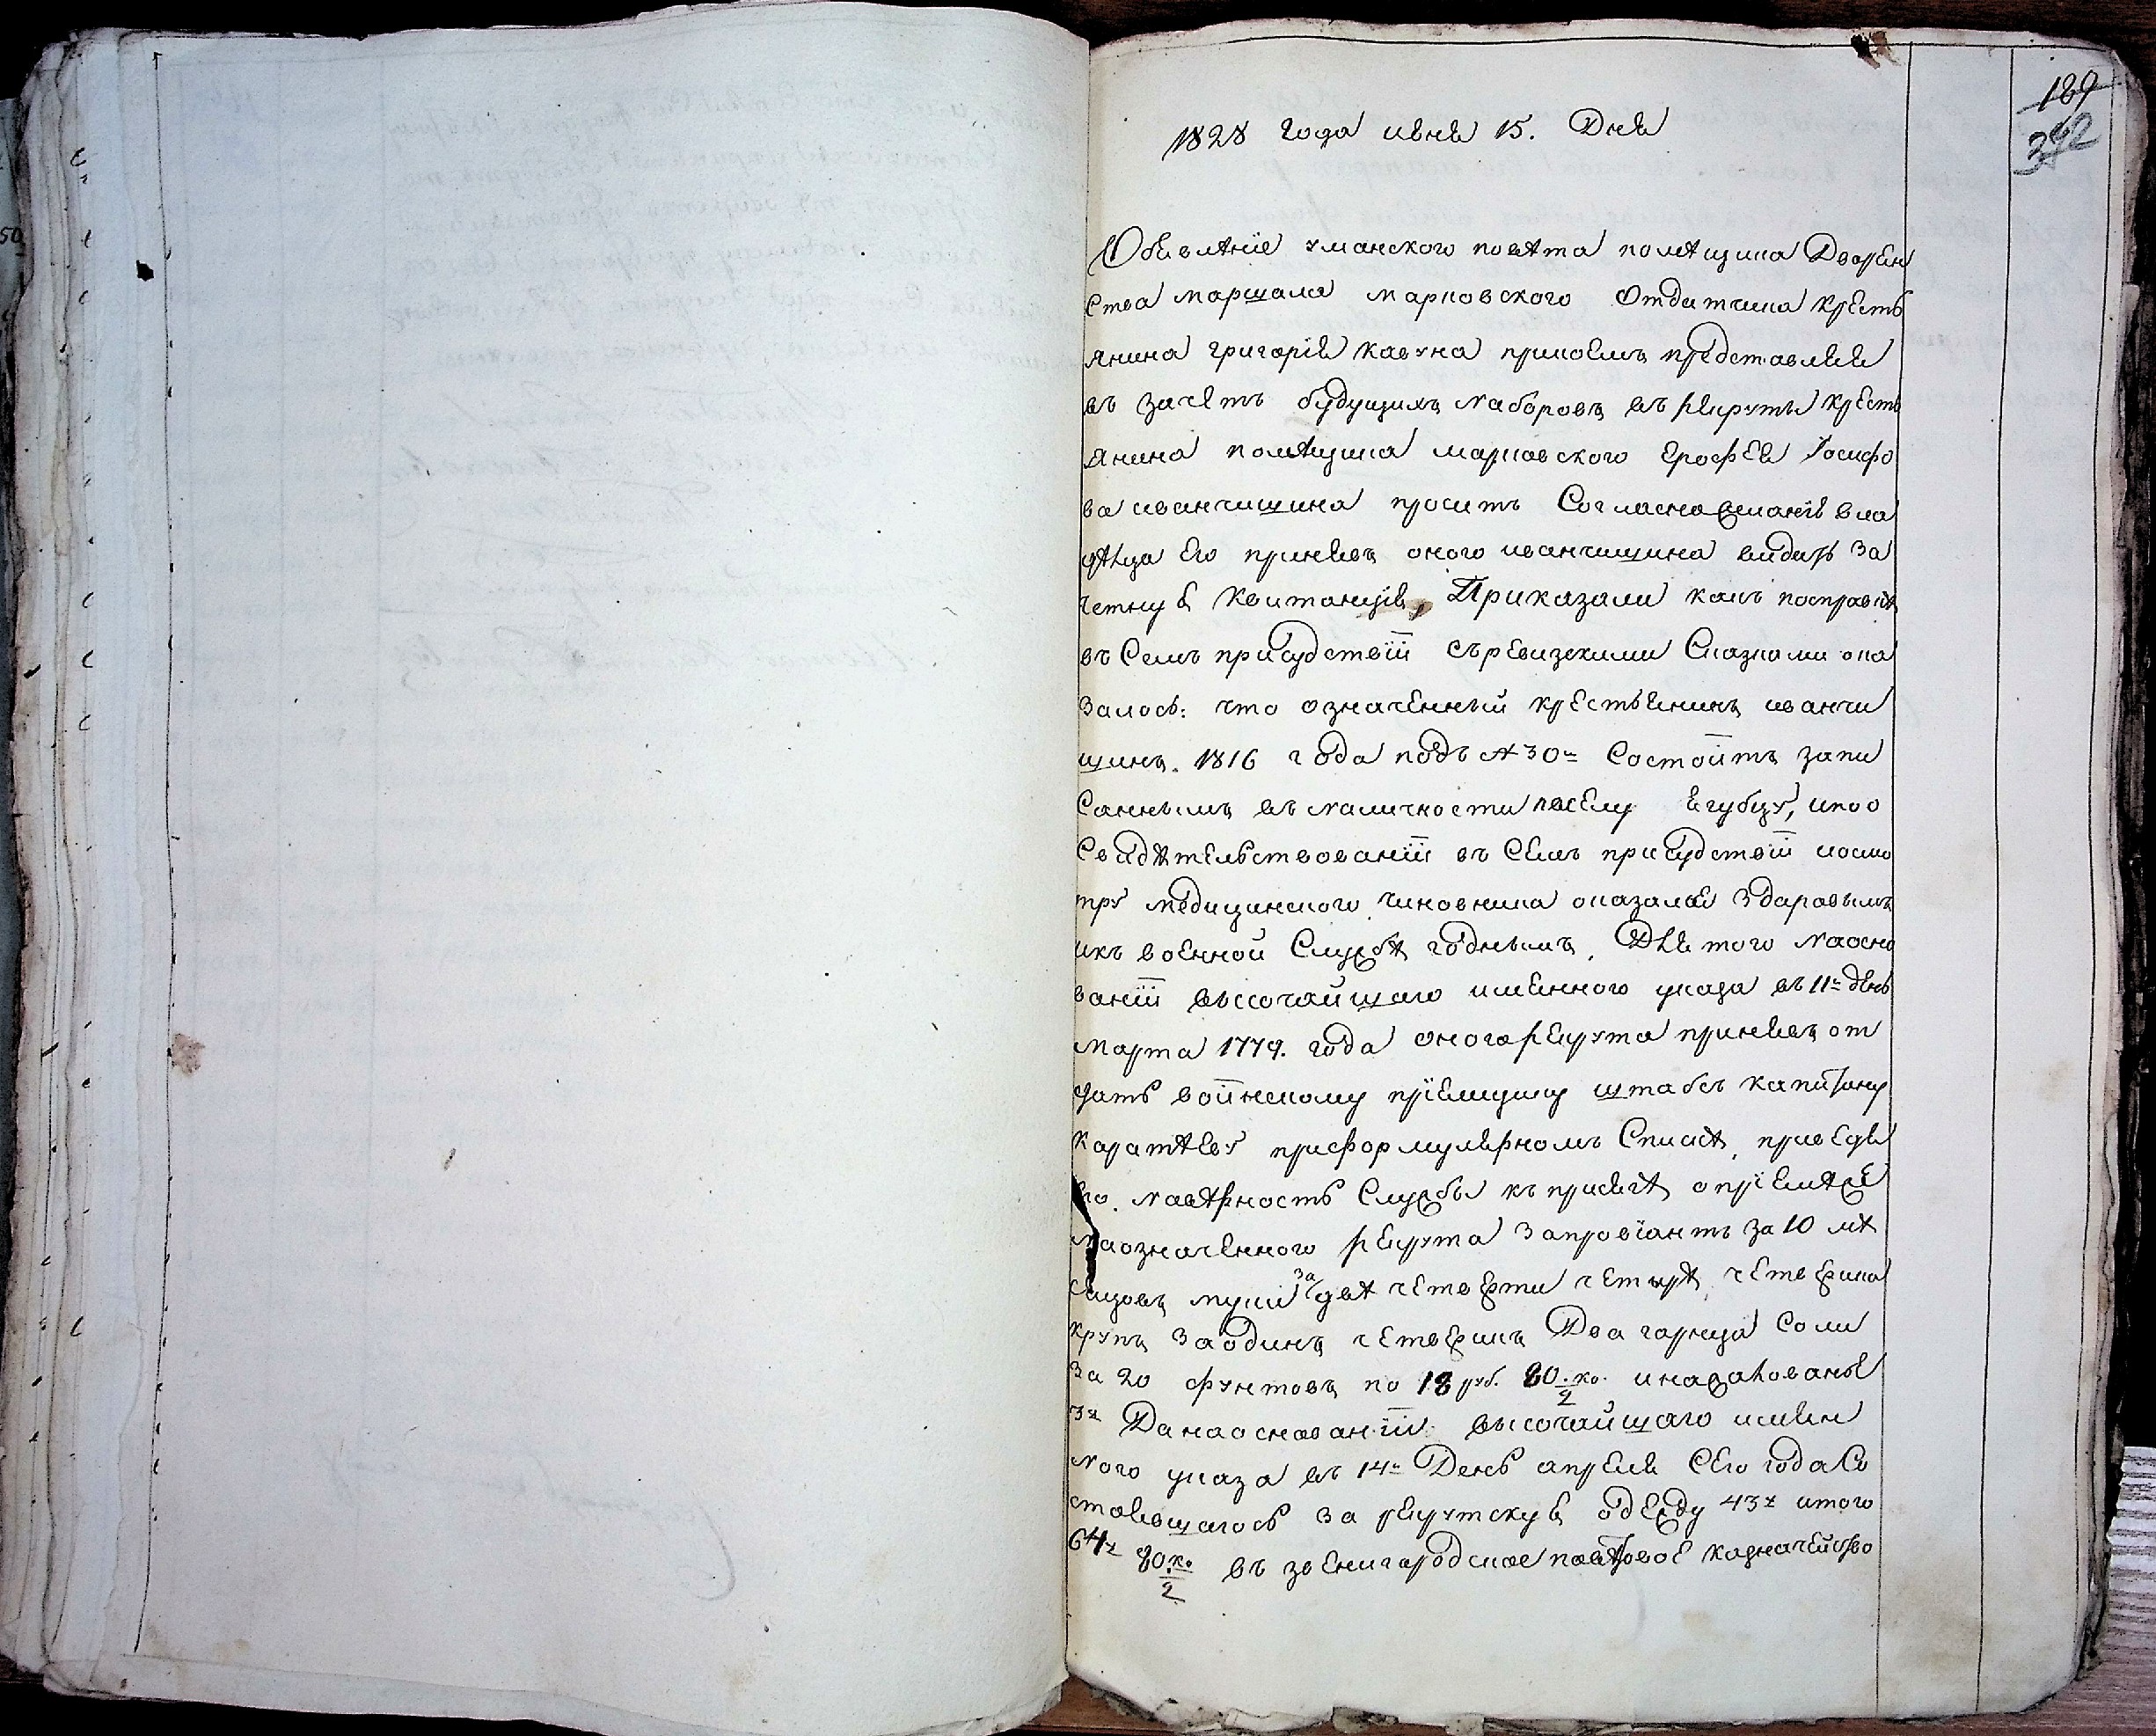 189
392
1828 года июня 15. Дня
Обявлѣніе уманского повѣта помѣщика Дворян
ства маршала марковского отдатчика кресть
янина григорія кавунаприкоемъ представляя
въ зачетъ будущихъ наборовъ въ рекруты кресть
янина помѣщика марковского ерофея Іосифо
ва иванчишина просить Согласно желанію вла
дѣлца его принявъ оного иванчишина видать за
четную квитанцію, Приказали какъ посправкѣ
въ Семъ присудствіи съ ревизскими Сказками ока
залось: что означенный крестьянинъ иванчи
шинъ 1816 года подъ № 30м Состоитъ запи
Саннымъ въ наличности посему и поо
Свидѣтельствованіи въ Семъ присудствіи носмо
тру медицинского чиновника оказался здаровымъ
икъ военной Службѣ годнымъ, Для того наосно
ваніи высочайшаго именного указа въ 11й день
марта 1779. года оного рекрута принявъ от
дать воинскому пріемщику штабсъ капитану
каратѣеву при формулярномъ Спискѣ, приведя
его на вѣрность Службы къ присягѣ о пріемѣ же
какъ означенного рекрута За провіантъ за 10 мѣ
сяцовъ муки за двѣ четверти четире четверика
крупъ за одинъ четверикъ Два гарнца Соли
За 20 фунтовъ по 18 руб. 80 ко. и на жалованье
3р Да на основаніи высочайшаго имян
ного указа въ 14й День апреля Сего года Со
стоявшагося за рекрутскую одежду 43р итого
64р 80 к. въ звенигородское повѣтовое казначейство